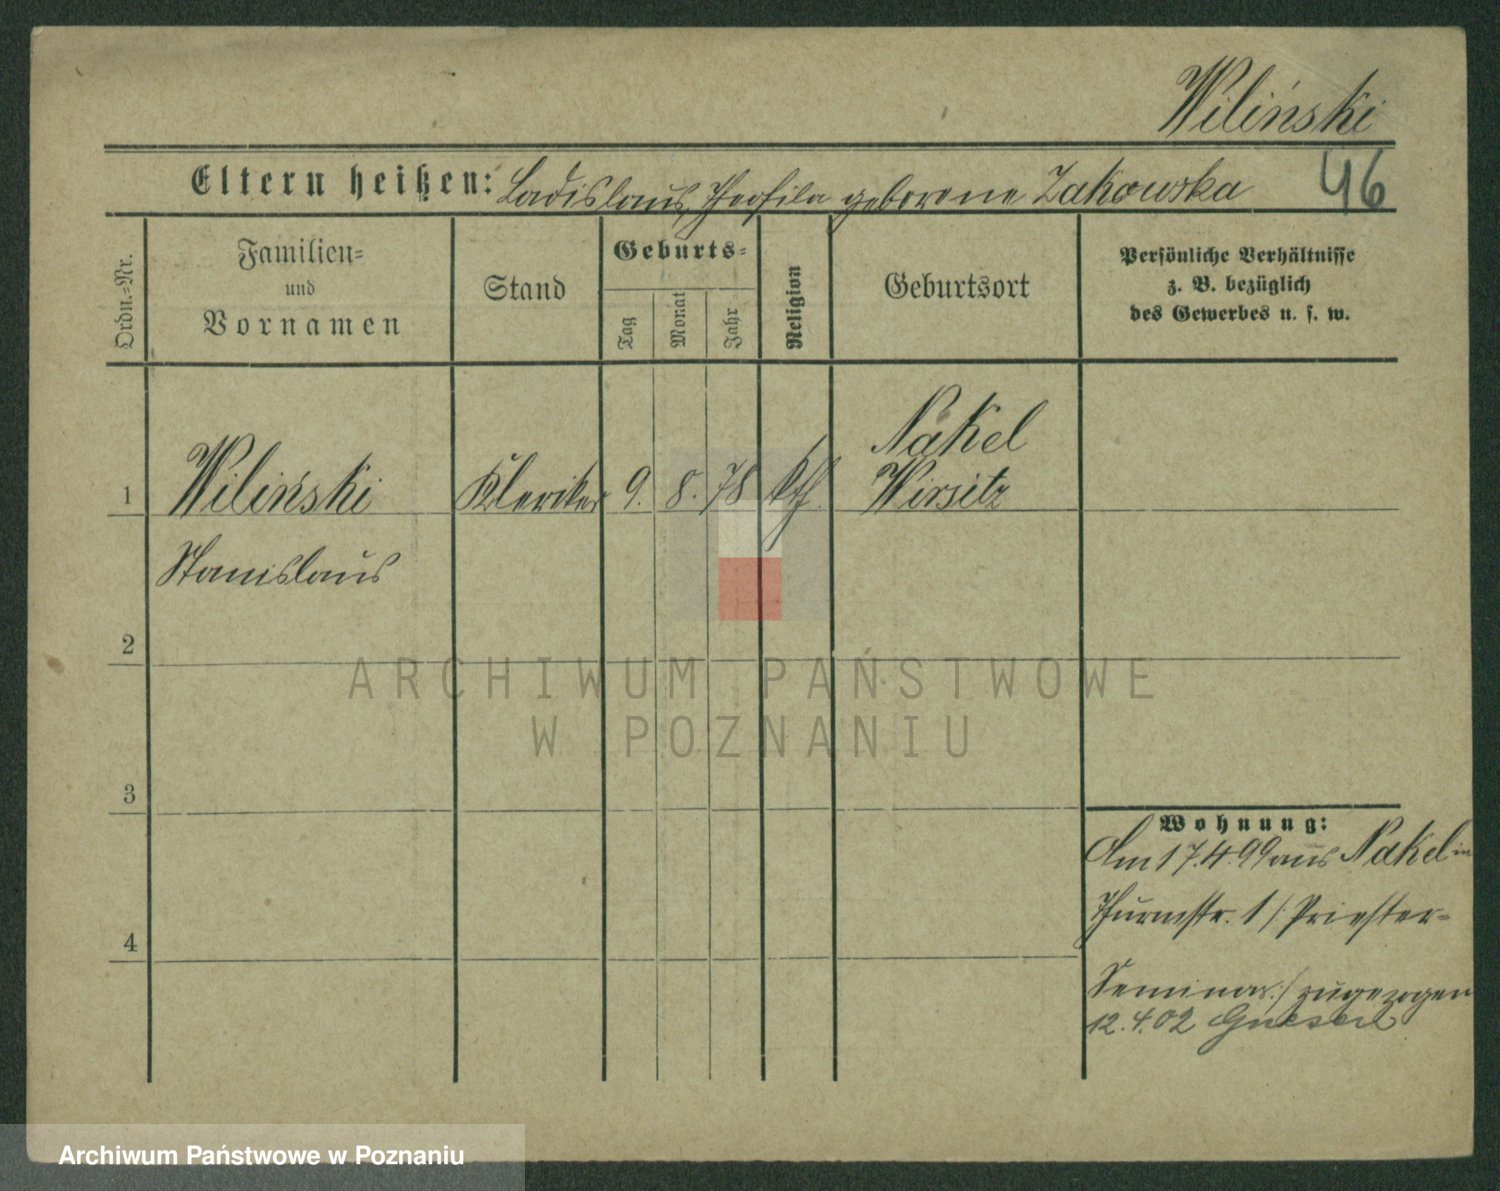 Wiliński
Eltern heißen: Ladislaus, Theofila geborene Zakowska 46
Ordn.-Nr.
Familien-
und
Vornamen
Stand
Geburts-
Tag
Monat
Jahr
Religion
Geburtsort
Persönliche Verhältnisse
z. B. bezüglich
des Gewerbes u. s. w.
Nakel
1 Wiliński Kleriker 9. 8. 78 kth. Wirsitz
Stanislaus
2
3
4
Wohnung:
Am 17.4.99 aus Nakel in
Thurmstr. 1 /: Priester-
Seminar :/ zugezogen
12.4.02 Gnesen
ARCHIWUM PAŃSTWOWE
W POZNANIU
Archiwum Państwowe w Poznaniu